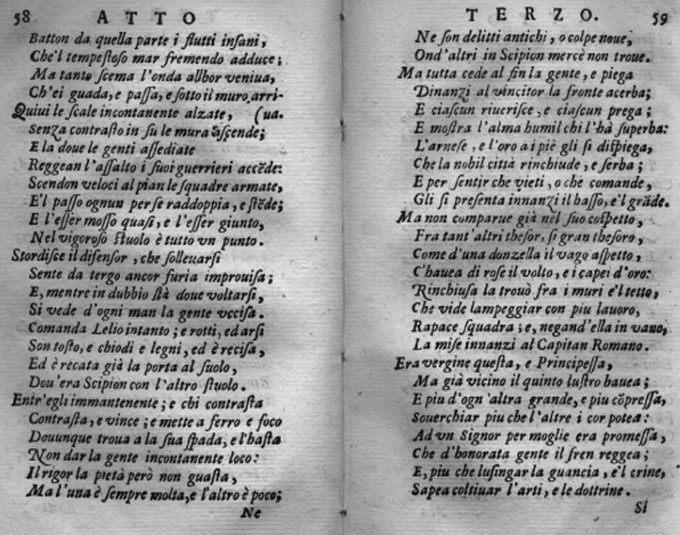 58 ATTO
Batton da quella parte i flutti insani,
Che'l tempestoso mar fremendo adduce;
Ma tanto scema l'onda allhor veniua,
Ch'ei guada, e passa, e sotto il muro arri-
Quiui le scale incontanente alzate, (ua.
Senza contrasto in su le mura ascende;
E la doue le genti assediate
Reggean l'assalto i suoi guerrieri accēde:
Scendon veloci al pian le squadre armate,
E'l passo ognun per se raddoppia, e stēde;
E l'esser mosso quasi, e l'esser giunto,
Nel vigoroso stuolo è tutto vn punto.
Stordisce il difensor, che solleuarsi
Sente da tergo ancor furia improuisa;
E, mentre in dubbio stà doue voltarsi,
Si vede d'ogni man la gente vccisa.
Comanda Lelio intanto; e rotti, ed arsi
Son tosto, e chiodi e legni, ed è recisa,
Ed è recata già la porta al suolo,
Dou'era Scipion con l'altro stuolo.
Entr'egli immantenente; e chi contrasta
Contrasta, e vince; e mette a ferro e foco
Douunque troua a la sua spada, e l'hasta
Non dar la gente incontanente loco:
Il rigor la pietà però non guasta,
Ma l'una è sempre molta, e l'altro è poco;
Ne
TERZO. 59
Ne son delitti antichi, o colpe noue,
Ond'altri in Scipion mercè non troue.
Ma tutta cede al fin la gente, e piega
Dinanzi al vincitor la fronte acerba;
E ciascun riuerisce, e ciascun prega;
E mostra l'alma humil chi l'hà superba:
L'arnese, e l'oro a i piè gli si dispiega,
Che la nobil città rinchiude, e serba;
E per sentir che vieti, o che comande,
Gli si presenta innanzi il basso, e'l grāde.
Ma non comparue già nel suo cospetto,
Fra tant'altri thesor, si gran thesoro,
Come d'una donzella il vago aspetto,
C'hauea di rose il volto, e i capei d'oro:
Rinchiusa la trouò fra i muri e'l tetto,
Che vide lampeggiar con piu lauoro,
Rapace squadra; e, negand'ella in vano,
La mise innanzi al Capitan Romano.
Era vergine questa, e Principessa,
Ma già vicino il quinto lustro hauea;
E piu d'ogn'altra grande, e piu cōpressa,
Souerchiar piu che l'altre i cor potea:
Ad vn Signor per moglie era promessa,
Che d'honorata gente il fren reggea;
E, piu che lusingar la guancia, e'l crine,
Sapea coltiuar l'arti, e le dottrine.
Si